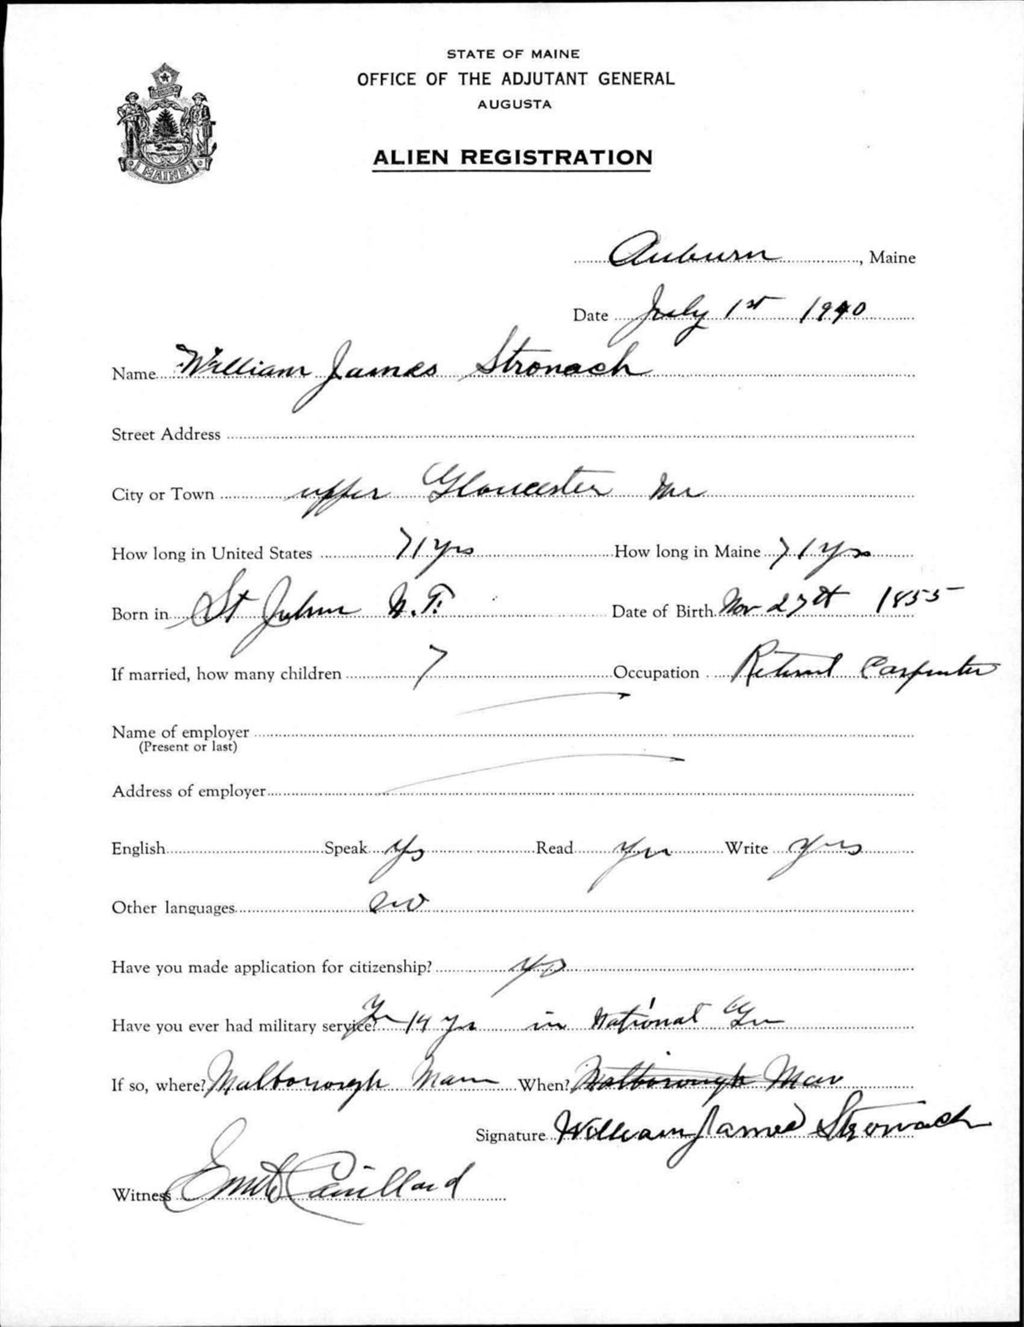 STATE OF MAINE
OFFICE OF THE ADJUTANT GENERAL
AUGUSTA
MAINE
ALIEN REGISTRATION
Auburn, Maine
Date July 1st 1940
Name William James Stronach
Street Address
City or Town upper Gloucester Me
How long in United States 71 yrs How long in Maine 71 yrs
Born in St John N.F. Date of Birth Nov 27th 1855
If married, how many children 7 Occupation Retired Carpenter
Name of employer
(Present or last)
Address of employer
English Speak yes Read yes Write yes
Other languages no
Have you made application for citizenship? yes
Have you ever had military service? Yes 14 yrs in National
If so, where? Malborough When? Malborough
Signature William James Stronach
Witness